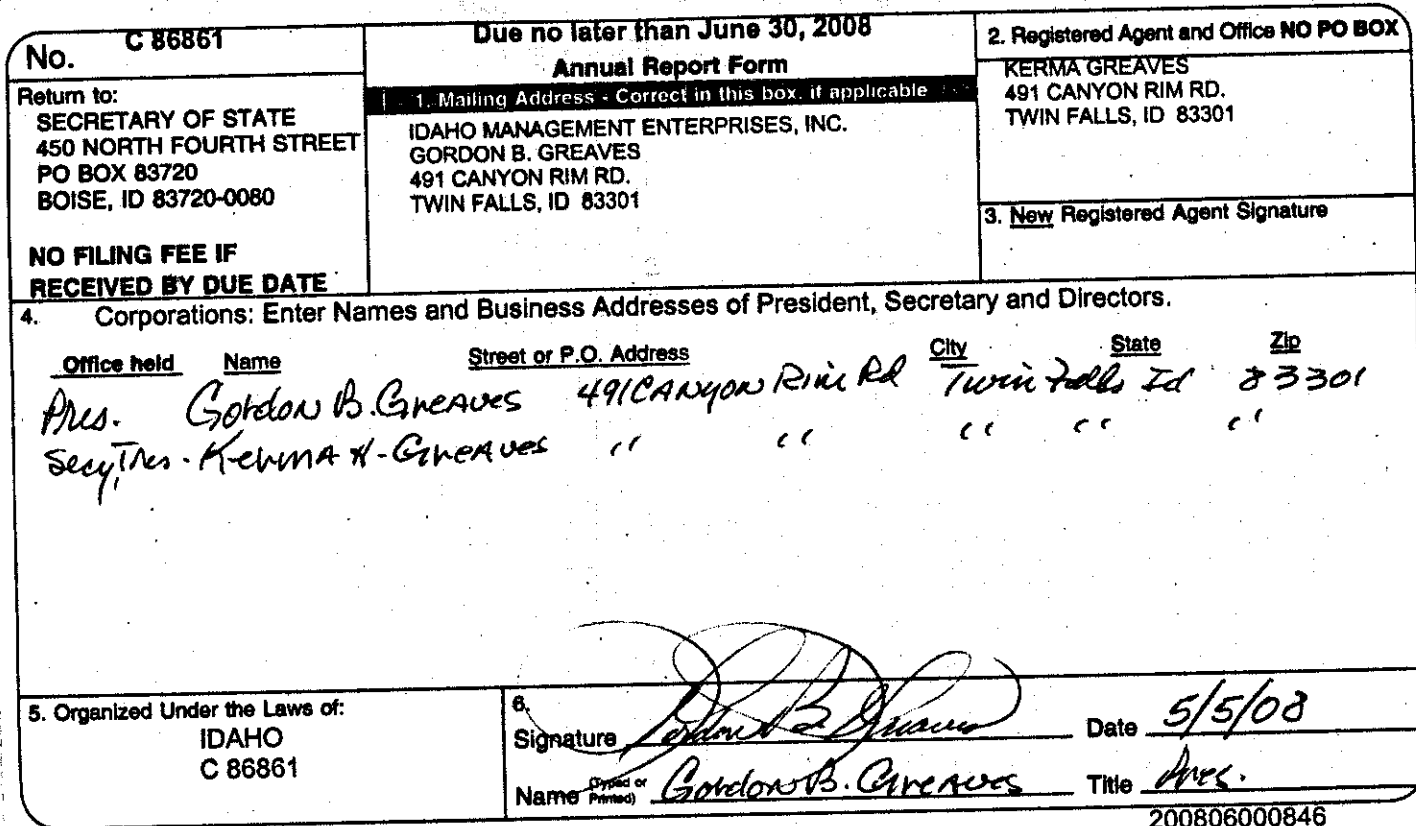 No. C 86861
Return to:
SECRETARY OF STATE
450 NORTH FOURTH STREET
PO BOX 83720
BOISE, ID 83720-0080
NO FILING FEE IF
RECEIVED BY DUE DATE
Due no later than June 30, 2008
Annual Report Form
1. Mailing Address - Correct in this box, if applicable
IDAHO MANAGEMENT ENTERPRISES, INC.
GORDON B. GREAVES
491 CANYON RIM RD.
TWIN FALLS, ID 83301
2. Registered Agent and Office NO PO BOX
KERMA GREAVES
491 CANYON RIM RD.
TWIN FALLS, ID 83301
3. New Registered Agent Signature
4. Corporations: Enter Names and Business Addresses of President, Secretary and Directors.
Office held Name Street or P.O. Address City State Zip
Pres. Gordon B. Greaves 491 Canyon Rim Rd Twin Falls Id 83301
Secy, Tres. Kerma H. Greaves " " " " "
5. Organized Under the Laws of:
IDAHO
C 86861
6.
Signature Gordon B Greaves Date 5/5/08
Name (Typed or Printed) Gordon B. Greaves Title Pres.
200806000846